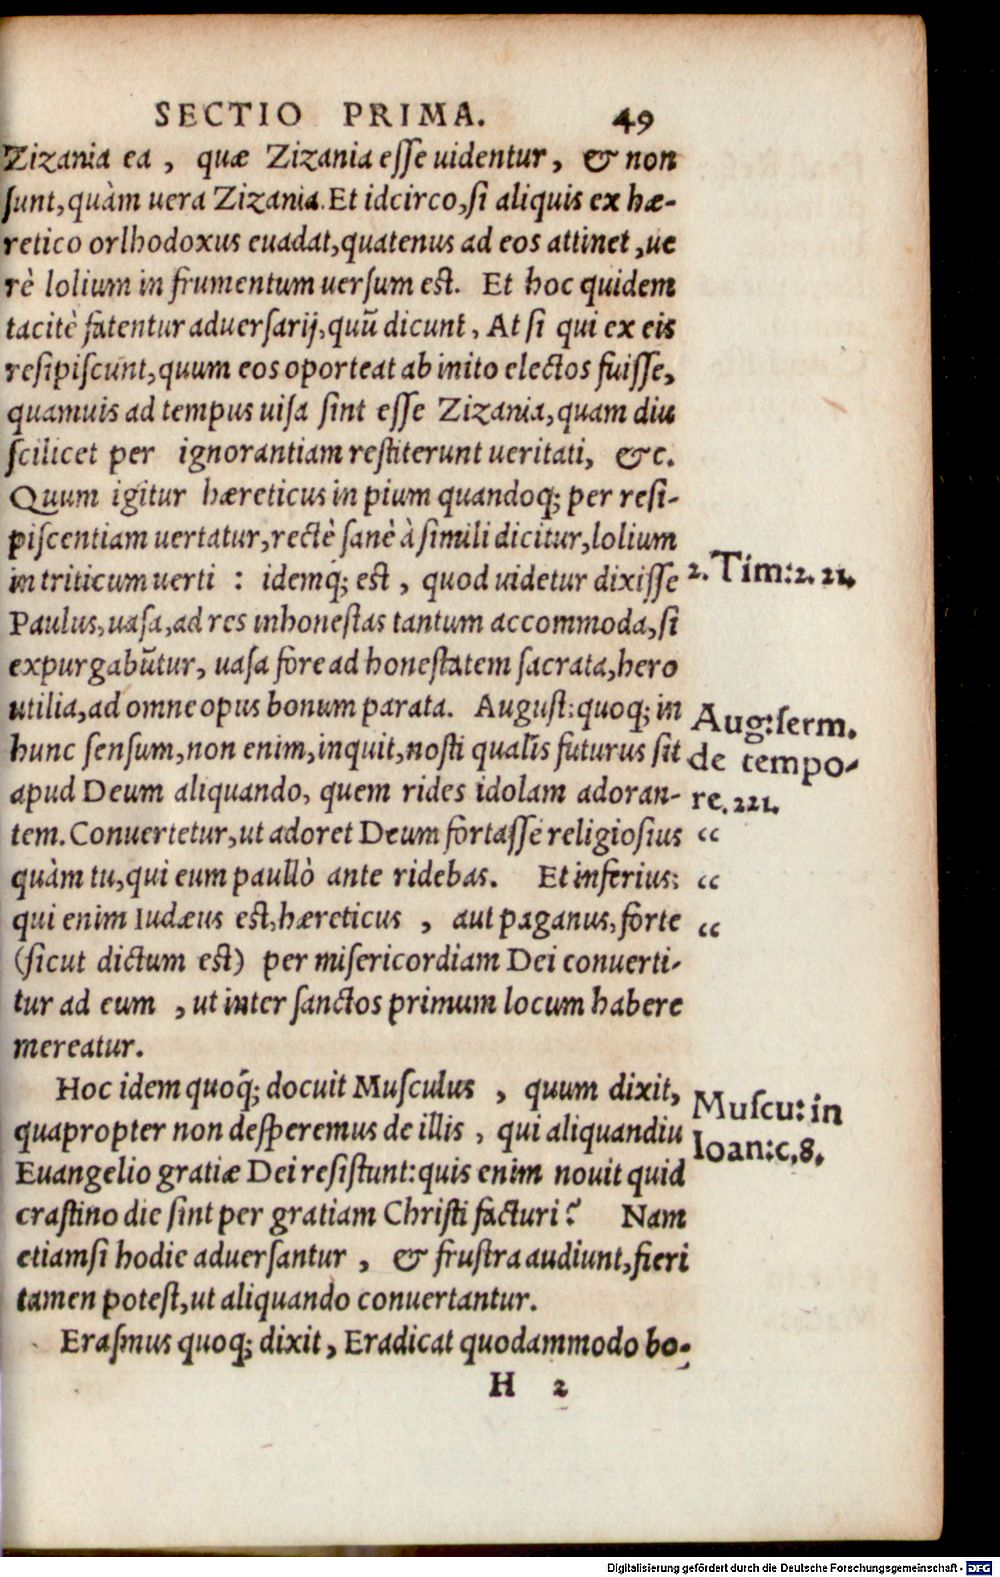 SECTIO PRIMA. 49
Zizania ea, quæ Zizania esse uidentur, & non
sunt, quàm uera Zizania. Et idcirco, si aliquis ex hæ-
retico orlhodoxus euadat, quatenus ad eos attinet, ue
rè lolium in frumentum uersum est. Et hoc quidem
tacitè fatentur aduersarij, quũ dicunt, At si qui ex eis
resipiscunt, quum eos oporteat ab inito electos fuisse,
quamuis ad tempus uisa sint esse Zizania, quam diu
scilicet per ignorantiam restiterunt ueritati, &c.
Quum igitur hæreticus in pium quandoq; per resi-
piscentiam uertatur, rectè sanè à simili dicitur, lolium
in triticum uerti : idemq; est, quod uidetur dixisse
2. Tim: 2. 21.
Paulus, uasa, ad res inhonestas tantum accommoda, si
expurgabũtur, uasa fore ad honestatem sacrata, hero
utilia, ad omne opus bonum parata. August: quoq; in
Aug: serm.
hunc sensum, non enim, inquit, nosti qualis futurus sit
de tempo-
apud Deum aliquando, quem rides idolam adoran-
re. 221.
tem. Conuertetur, ut adoret Deum fortasse religiosius
“
quàm tu, qui eum paullò ante ridebas. Et inferius:
“
qui enim Iudæus est, hæreticus, aut paganus, forte
“
(sicut dictum est) per misericordiam Dei conuerti-
tur ad eum, ut inter sanctos primum locum habere
mereatur.
Hoc idem quoq; docuit Musculus, quum dixit,
Muscu: in
quapropter non desperemus de illis, qui aliquandiu
Ioan: c. 8.
Euangelio gratiæ Dei resistunt: quis enim nouit quid
crastino die sint per gratiam Christi facturi? Nam
etiamsi hodie aduersantur, & frustra audiunt, fieri
tamen potest, ut aliquando conuertantur.
Erasmus quoq; dixit, Eradicat quodammodo bo-
H 2
Digitalisierung gefördert durch die Deutsche Forschungsgemeinschaft - DFG